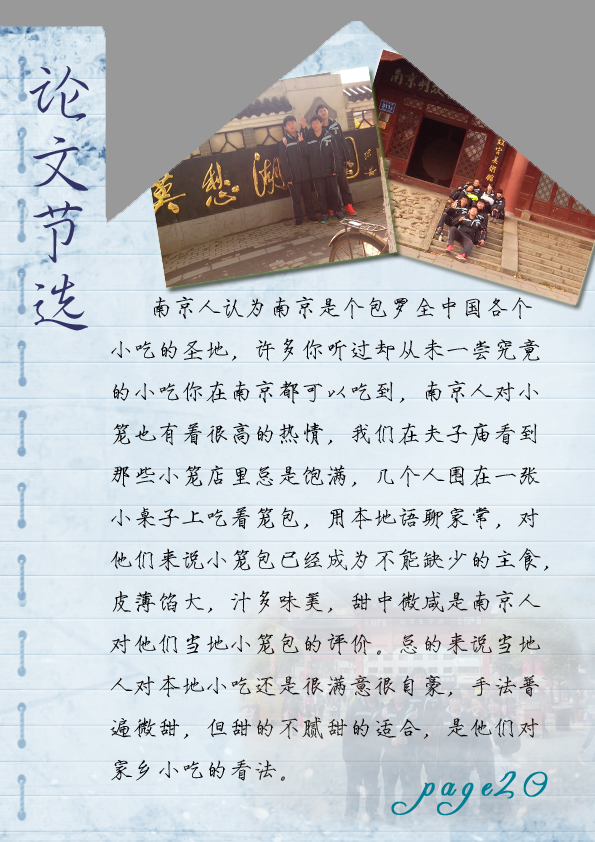 论文节选
莫愁湖
南京
故宫美术馆
南京人认为南京是个包罗全中国各个
小吃的圣地，许多你听过却从未一尝究竟
的小吃你在南京都可以吃到，南京人对小
笼也有着很高的热情，我们在夫子庙看到
那些小笼店里总是饱满，几个人围在一张
小桌子上吃着笼包，用本地语聊家常，对
他们来说小笼包已经成为不能缺少的主食，
皮薄馅大，汁多味美，甜中微咸是南京人
对他们当地小笼包的评价。总的来说当地
人对本地小吃还是很满意很自豪，手法普
遍微甜，但甜的不腻甜的适合，是他们对
家乡小吃的看法。
page20